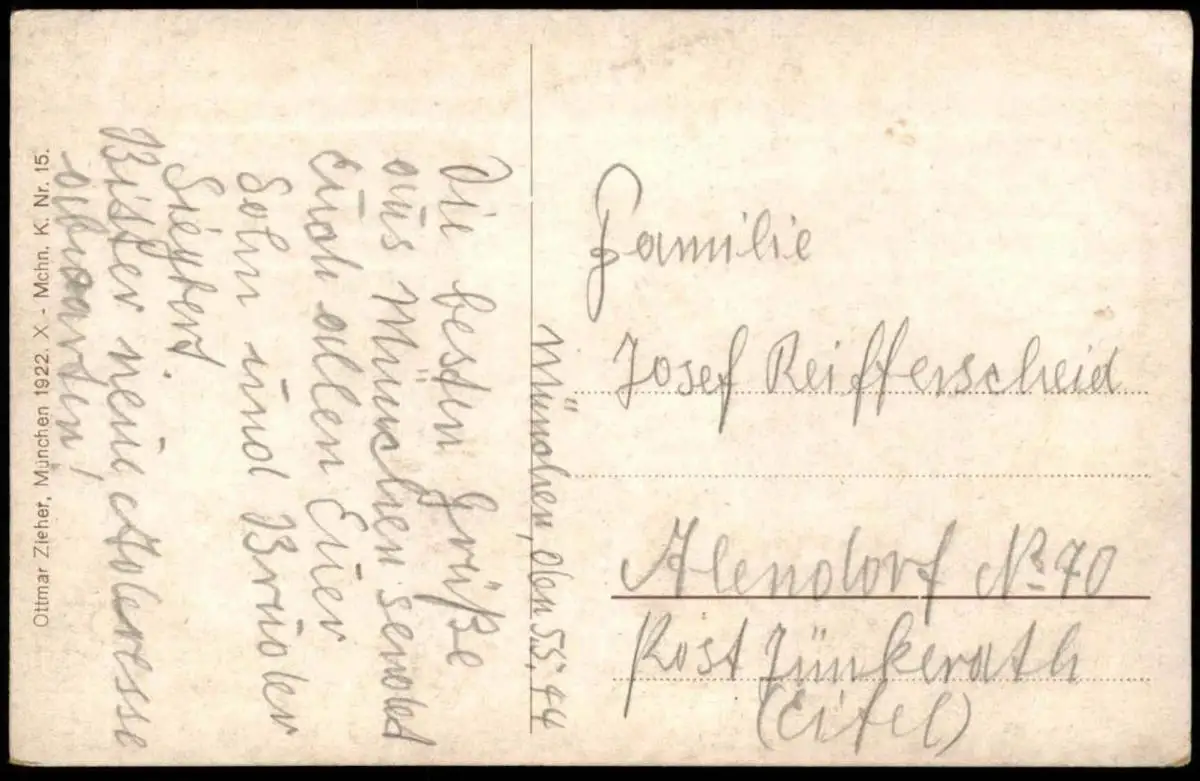 München, den 5.5.44
Die besten Grüße
aus München sendet
Euch allen Euer
Sohn und Bruder
Siegbert.
Bitter neue Adresse
abwarten,
Familie
Josef Reifferscheid
Alendorf No 70
Post Jünkerath
(Eifel)
Ottmar Zieher, München 1922. X - Mchn. K. Nr. 15.